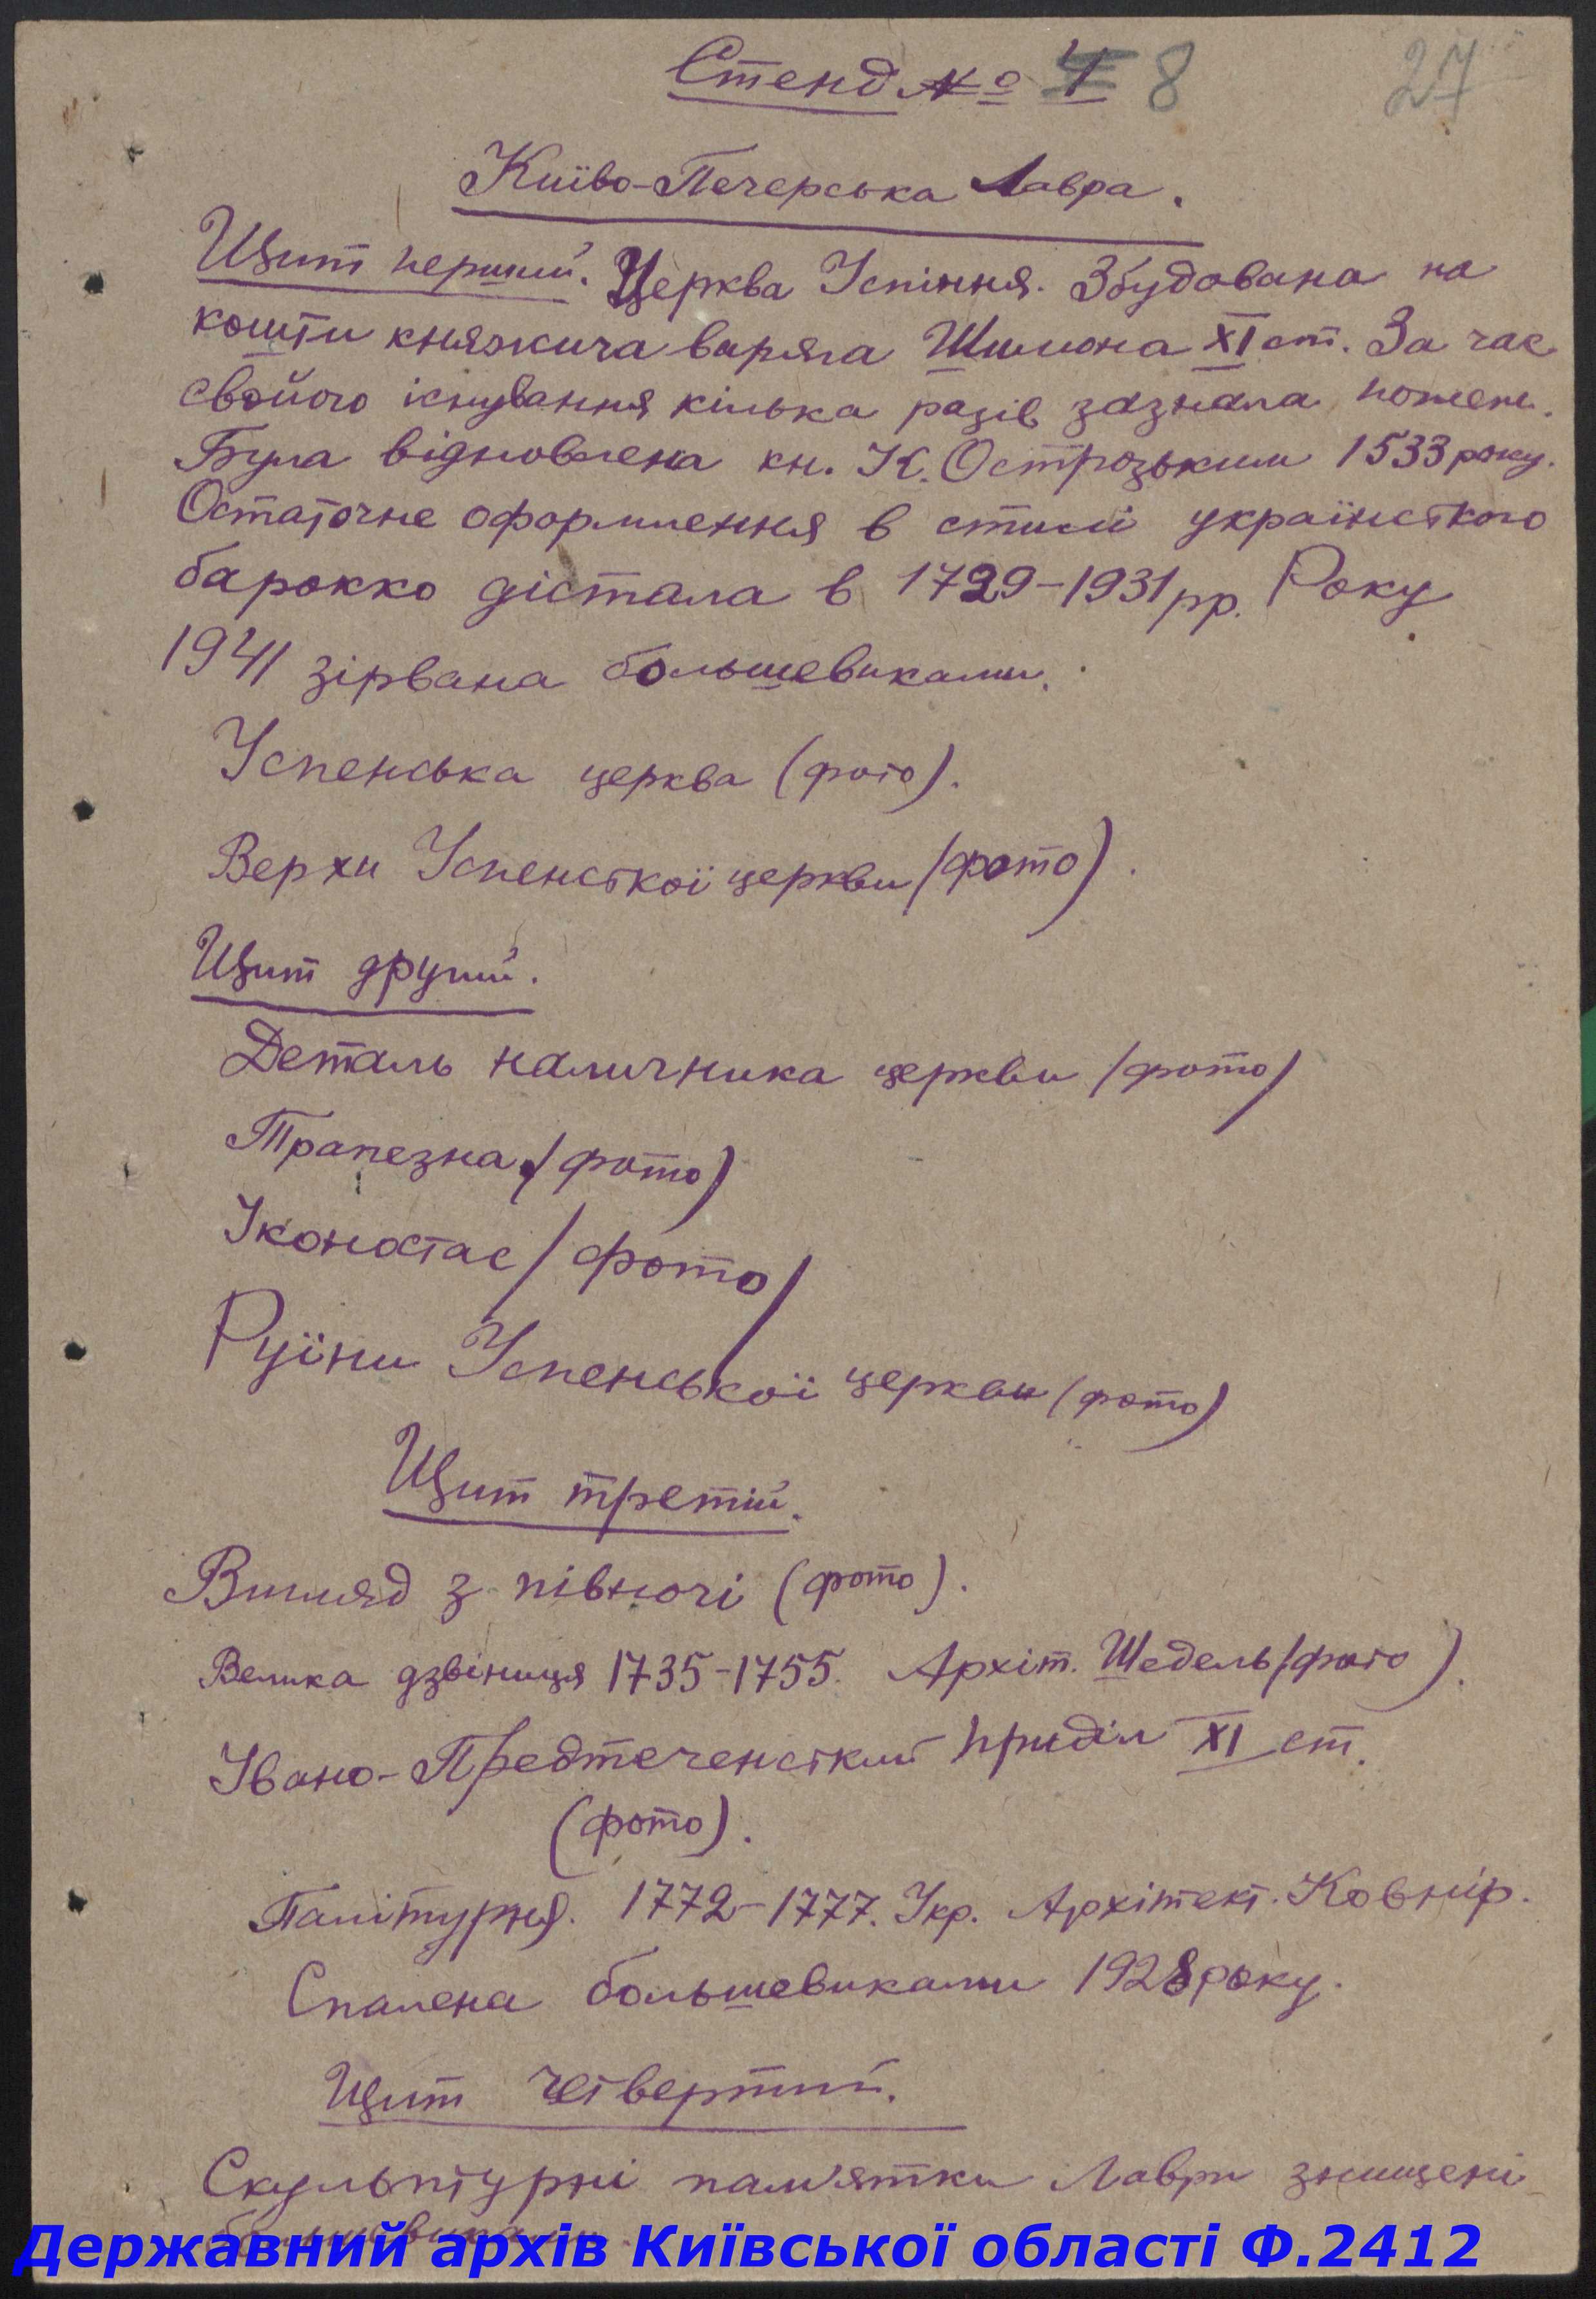 Стенд № 4 8 27
Київо-Печерська Лавра.
Щит перший. Церква Успіння. Збудована на
кошти княжича варяга Шимона XI ст. За час
свойого існування кілька разів зазнала пожеж.
Була відновлена кн. К. Острозьким 1533 року.
Остаточне оформлення в стилі українського
барокко дістала в 1729-1931 рр. Року
1941 зірвана большевиками.
Успенська церква (фото).
Верхи Успенської церкви /фото).
Щит другий.
Деталь наличника церкви /фото/
Трапезна /фото)
Іконостас /фото/
Руїни Успенської церкви (фото)
Щит третій.
Вигляд з півночі (фото).
Велика дзвіниця 1735-1755. Архіт. Шедель /фото).
Івано-Предтеченський приділ XI ст.
(фото).
Палітурня. 1772-1777. Укр. Архітект. Ковнір.
Спалена большевиками 1928 року.
Щит четвертий.
Скульптурні пам'ятки Лаври знищені
большевиками.
Державний архів Київської області Ф.2412